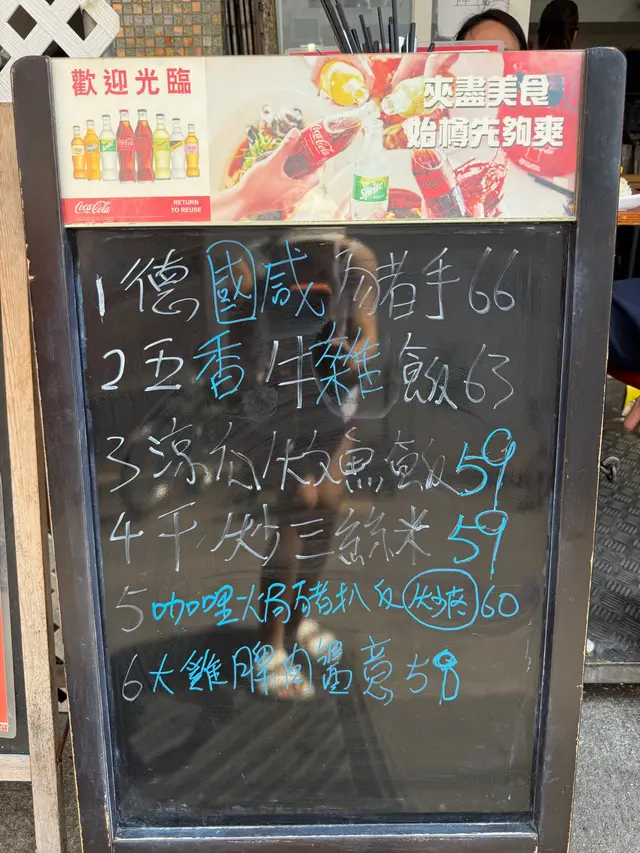 歡迎光臨
Coca-Cola
RETURN
TO REUSE
夾盡美食
始樽先夠爽
Coca-Cola
Sprite
1 德國咸豬手 66
2 五香牛雜飯 63
3 涼瓜炆魚飯 59
4 干炒三絲米 59
5 咖哩焗豬扒反 60
6 大雞脾肉醬意 58